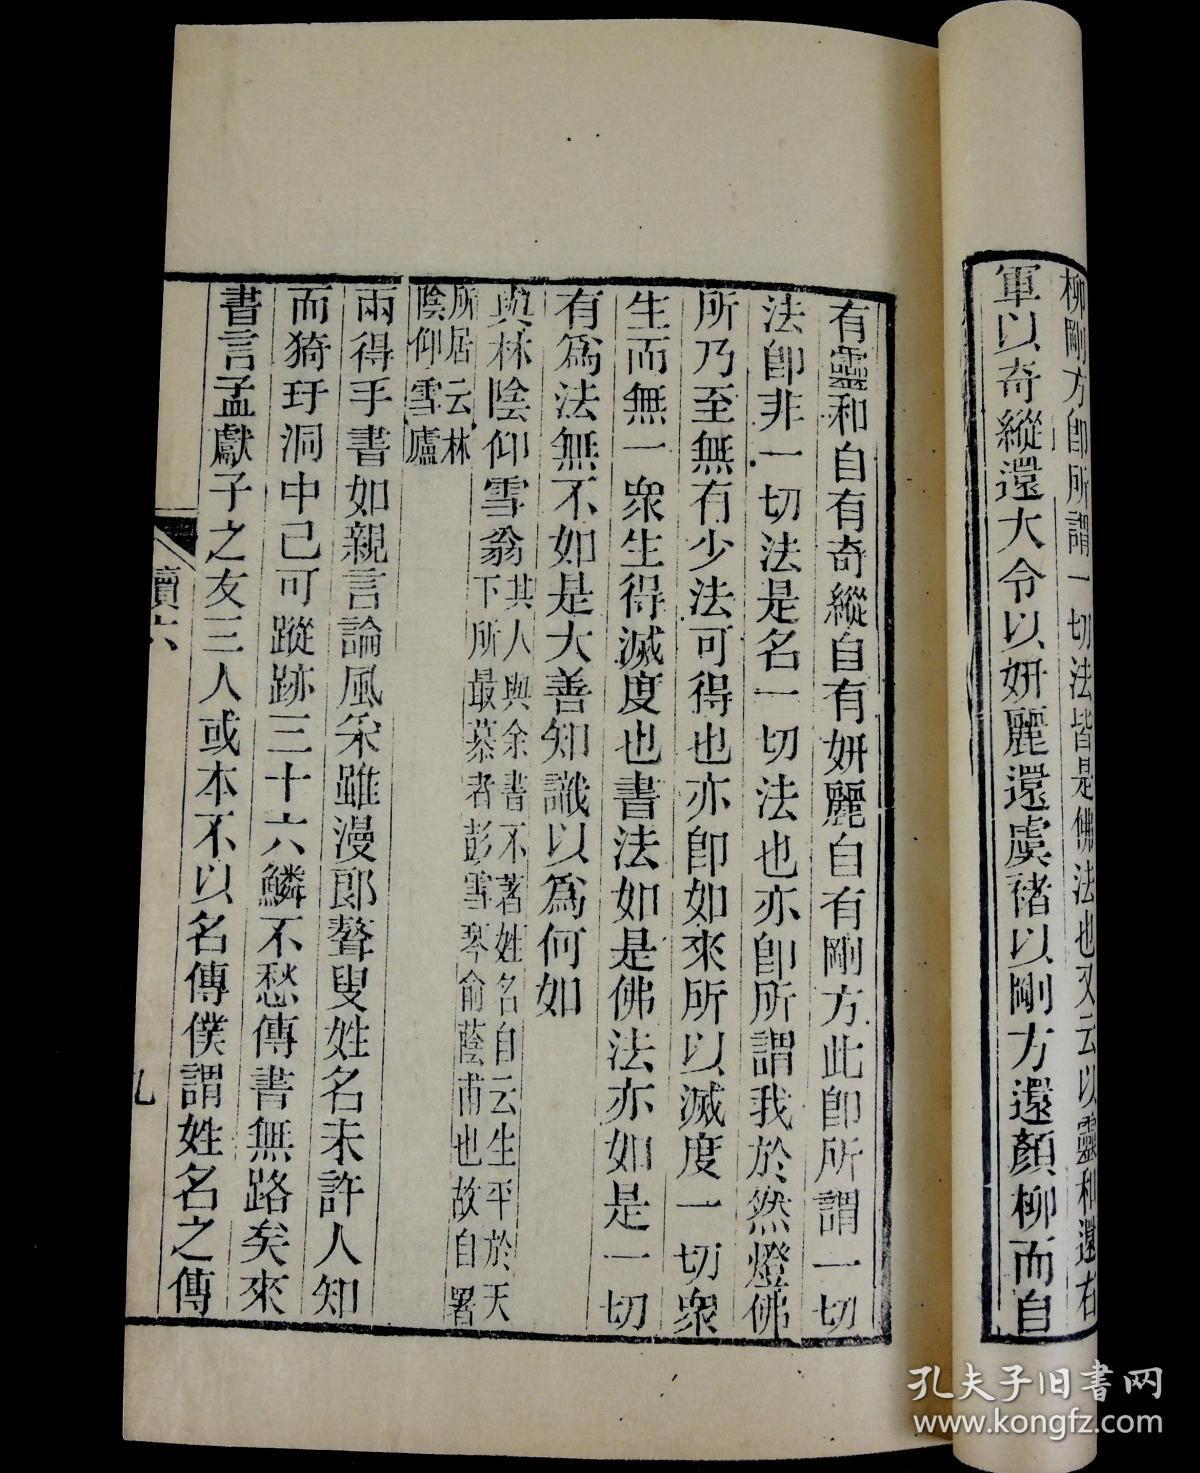 柳剛方卽所謂一切法皆是佛法也又云以靈和還右
軍以奇縱還大令以妍麗還虞褚以剛方還顏柳而自
有靈和自有奇縱自有妍麗自有剛方此卽所謂一切
法卽非一切法是名一切法也亦卽所謂我於然燈佛
所乃至無有少法可得也亦卽如來所以滅度一切衆
生而無一衆生得滅度也書法如是佛法亦如是一切
有爲法無不如是大善知識以爲何如
與林陰仰雪翁其人與余書不著姓名自云生平於天
下所最慕者彭雪琴俞蔭甫也故自署
所居云林
陰仰雪廬
兩得手書如親言論風采雖漫郎聱叟姓名未許人知
而猗玗洞中己可蹤跡三十六鱗不愁傳書無路矣來
書言孟獻子之友三人或本不以名傳僕謂姓名之傳
續六
九
孔夫子旧书网
www.kongfz.com